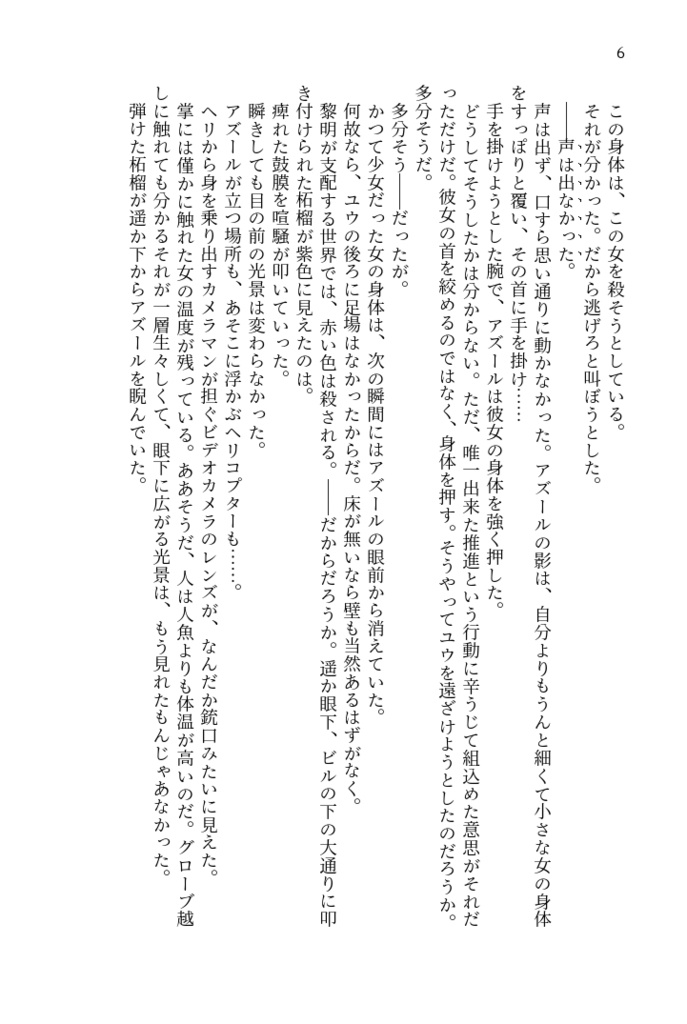 6
この身体は、この女を殺そうとしている。
それが分かった。だから逃げろと叫ぼうとした。
――声は出なかった。
声は出ず、口すら思い通りに動かなかった。アズールの影は、自分よりもうんと細くて小さな女の身体
をすっぽりと覆い、その首に手を掛け……
手を掛けようとした腕で、アズールは彼女の身体を強く押した。
どうしてそうしたかは分からない。ただ、唯一出来た推進という行動に辛うじて組込めた意思がそれだ
っただけだ。彼女の首を絞めるのではなく、身体を押す。そうやってユウを遠ざけようとしたのだろうか。
多分そうだ。
多分そう――だったが。
かつて少女だった女の身体は、次の瞬間にはアズールの眼前から消えていた。
何故なら、ユウの後ろに足場はなかったからだ。床が無いなら壁も当然あるはずがなく。
黎明が支配する世界では、赤い色は殺される。――だからだろうか。遥か眼下、ビルの下の大通りに叩
き付けられた柘榴が紫色に見えたのは。
痺れた鼓膜を喧騒が叩いていった。
瞬きしても目の前の光景は変わらなかった。
アズールが立つ場所も、あそこに浮かぶヘリコプターも……。
ヘリから身を乗り出すカメラマンが担ぐビデオカメラのレンズが、なんだか銃口みたいに見えた。
掌には僅かに触れた女の温度が残っている。ああそうだ、人は人魚よりも体温が高いのだ。グローブ越
しに触れても分かるそれが一層生々しくて、眼下に広がる光景は、もう見れたもんじゃあなかった。
弾けた柘榴が遥か下からアズールを睨んでいた。